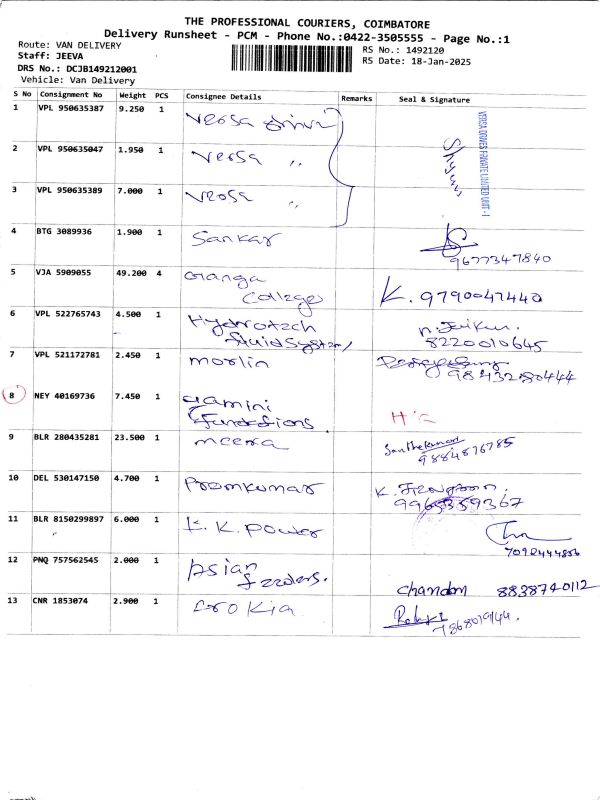 THE PROFESSIONAL COURIERS, COIMBATORE
Delivery Runsheet - PCM - Phone No.:0422-3505555 - Page No.:1
Route: VAN DELIVERY
Staff: JEEVA
DRS No.: DCJB149212001
Vehicle: Van Delivery
RS No.: 1492120
RS Date: 18-Jan-2025
S No Consignment No Weight PCS Consignee Details Remarks Seal & Signature
1 VPL 950635387 9.250 1 Versa drivi
VERSA DRIVES PRIVATE LIMITED UNIT - I
2 VPL 950635047 1.950 1 Versa "
3 VPL 950635389 7.000 1 Versa "
4 BTG 3089936 1.900 1 Sankar 9677347840
5 VJA 5909055 49.200 4 Ganga
College K. 9790047440
6 VPL 522765743 4.500 1 Hydrotech
fluid System 8220010645
7 VPL 521172781 2.450 1 morlin
8 NEY 40169736 7.450 1 Gamini
9 BLR 280435281 23.500 1 meera 9884876785
10 DEL 530147150 4.700 1 Premkumar K.
9965359367
11 BLR 8150299897 6.000 1 K.K. power
7092444856
12 PNQ 757562545 2.000 1 Asian
chandan 8838740112
13 CNR 1853074 2.900 1
7868019144.